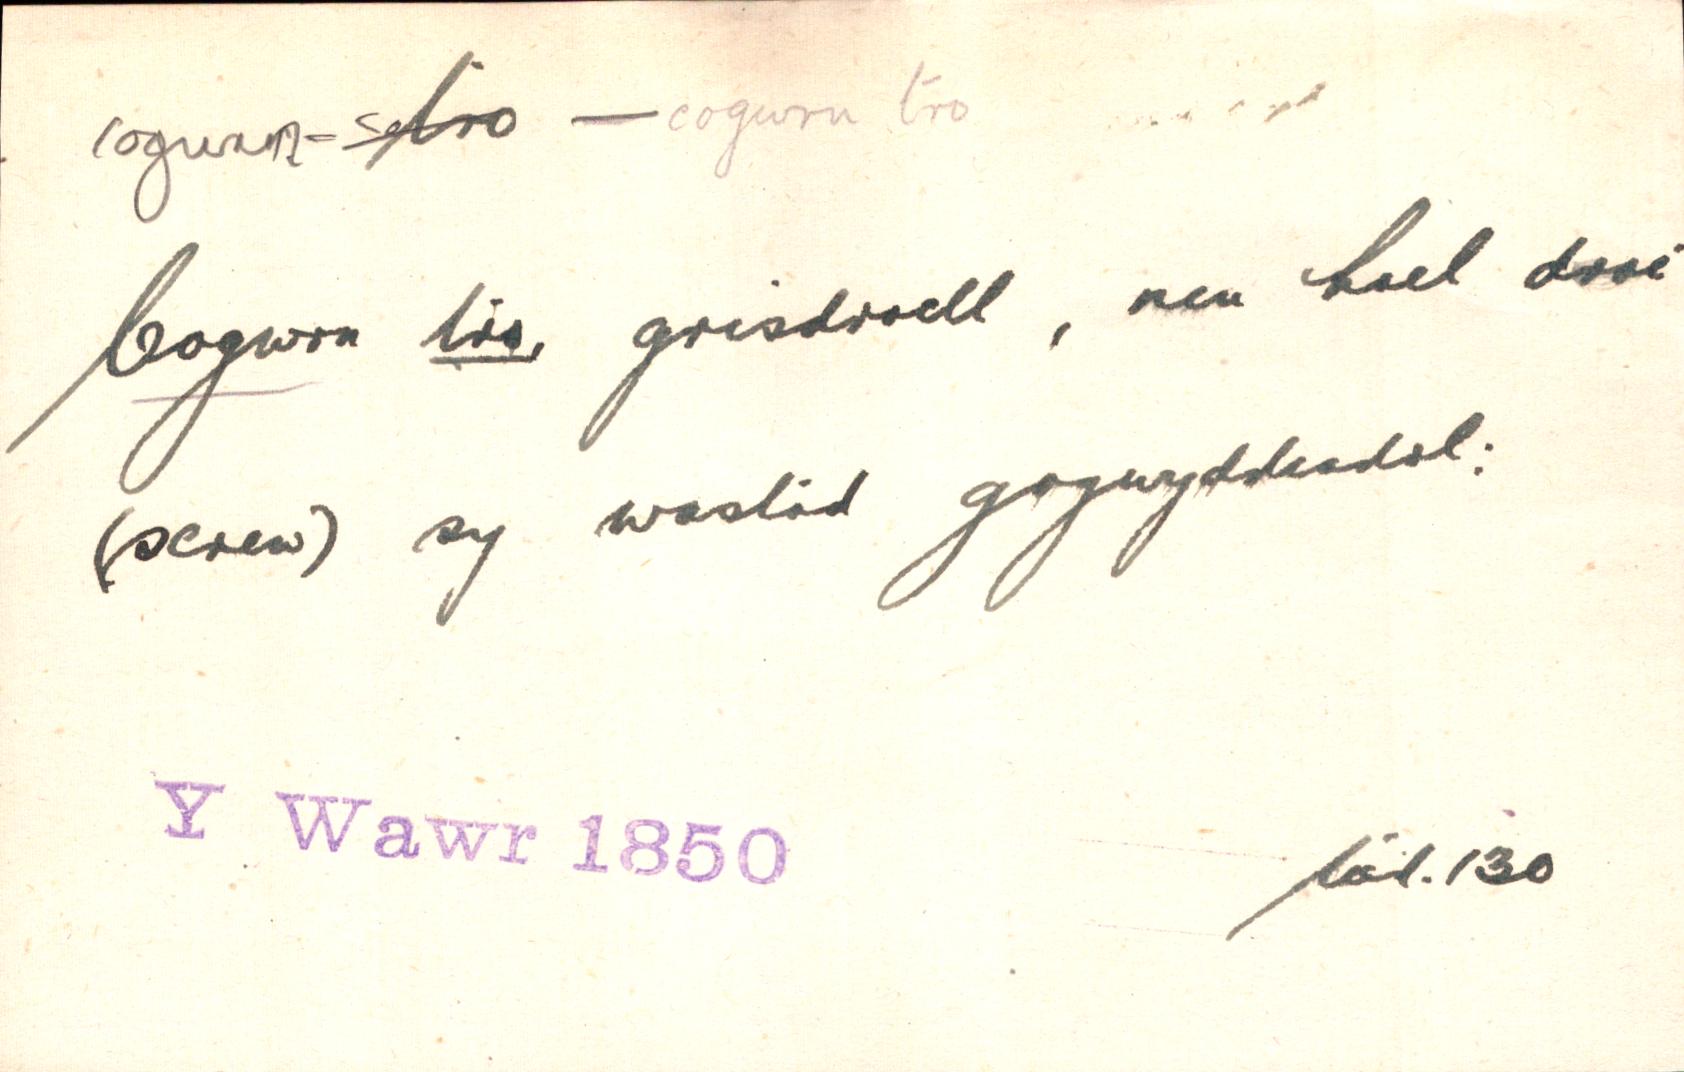 cogwrn-tro — cogwrn tro
Cogwrn tro, grisdroell, neu hoel droi
(screw) sy wastad gogwyddeadol:
Y Wawr 1850
tud. 130